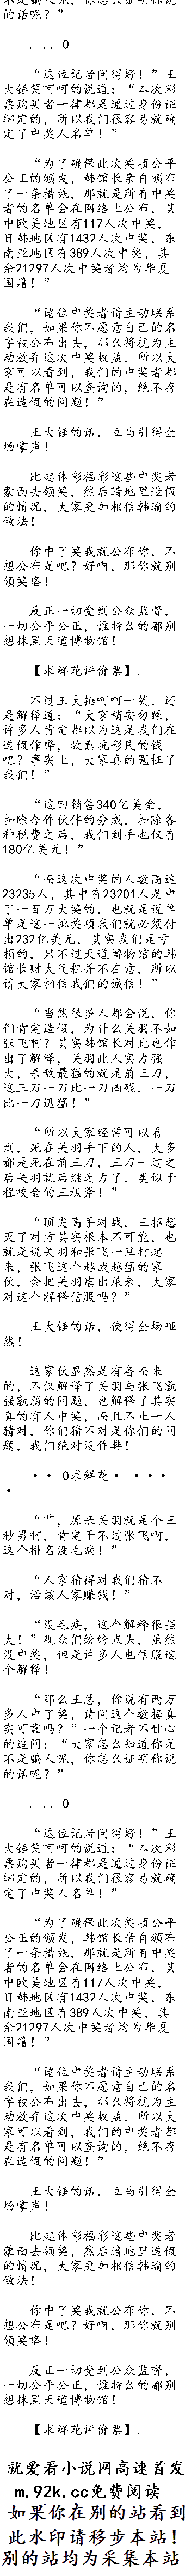 不是骗人呢，你怎么证明你说
的话呢？”
．．．0
“这位记者问得好！”王
大锤笑呵呵的说道：“本次彩
票购买者一律都是通过身份证
绑定的，所以我们很容易就确
定了中奖人名单！”
“为了确保此次奖项公平
公正的颁发，韩馆长亲自颁布
了一条措施，那就是所有中奖
者的名单会在网络上公布，其
中欧美地区有117人次中奖，
日韩地区有1432人次中奖，东
南亚地区有389人次中奖，其
余21297人次中奖者均为华夏
国籍！”
“诸位中奖者请主动联系
我们，如果你不愿意自己的名
字被公布出去，那么将视为主
动放弃这次中奖权益，所以大
家可以看到，我们的中奖者都
是有名单可以查询的，绝不存
在造假的问题！”
王大锤的话，立马引得全
场掌声！
比起体彩福彩这些中奖者
蒙面去领奖，然后暗地里造假
的情况，大家更加相信韩瑜的
做法！
你中了奖我就公布你，不
想公布是吧？好啊，那你就别
领奖咯！
反正一切受到公众监督，
一切公平公正，谁特么的都别
想抹黑天道博物馆！
【求鲜花评价票】．
不过王大锤呵呵一笑，还
是解释道：“大家稍安勿躁，
许多人肯定都以为这是我们在
造假作弊，故意坑彩民的钱
吧？事实上，大家真的冤枉了
我们！”
“这回销售340亿美金，
扣除合作伙伴的分成，扣除各
种税费之后，我们到手也仅有
180亿美元！”
“而这次中奖的人数高达
23235人，其中有23201人是中
了一百万大奖的，也就是说单
单是这一批奖项我们就必须付
出232亿美元，其实我们是亏
损的，只不过天道博物馆的韩
馆长财大气粗并不在意，所以
请大家相信我们的诚信！”
“当然很多人都会说，你
们肯定造假，为什么关羽不如
张飞啊？其实韩馆长对此也作
出了解释，关羽此人实力强
大，杀敌最猛的就是前三刀，
这三刀一刀比一刀凶残，一刀
比一刀迅猛！”
“所以大家经常可以看
到，死在关羽手下的人，大多
都是死在前三刀，三刀一过之
后关羽就后继乏力了，类似于
程咬金的三板斧！”
“顶尖高手对战，三招想
灭了对方其实根本不可能，也
就是说关羽和张飞一旦打起
来，张飞这个越战越猛的家
伙，会把关羽虐出屎来，大家
对这个解释信服吗？”
王大锤的话，使得全场哑
然！
这家伙显然是有备而来
的，不仅解释了关羽与张飞孰
强孰弱的问题，也解释了其实
真的有人中奖，而且不止一人
猜对，你们猜不对是你们的问
题，我们绝对没作弊！
·· 0求鲜花· ···
·
“艹，原来关羽就是个三
秒男啊，肯定干不过张飞啊，
这个排名没毛病！”
“人家猜得对我们猜不
对，活该人家赚钱！”
“没毛病，这个解释很强
大！”观众们纷纷点头，虽然
没中奖，但是许多人也信服这
个解释！
“那么王总，你说有两万
多人中了奖，请问这个数据真
实可靠吗？”一个记者不甘心
的追问：“大家怎么知道你是
不是骗人呢，你怎么证明你说
的话呢？”
．．．0
“这位记者问得好！”王
大锤笑呵呵的说道：“本次彩
票购买者一律都是通过身份证
绑定的，所以我们很容易就确
定了中奖人名单！”
“为了确保此次奖项公平
公正的颁发，韩馆长亲自颁布
了一条措施，那就是所有中奖
者的名单会在网络上公布，其
中欧美地区有117人次中奖，
日韩地区有1432人次中奖，东
南亚地区有389人次中奖，其
余21297人次中奖者均为华夏
国籍！”
“诸位中奖者请主动联系
我们，如果你不愿意自己的名
字被公布出去，那么将视为主
动放弃这次中奖权益，所以大
家可以看到，我们的中奖者都
是有名单可以查询的，绝不存
在造假的问题！”
王大锤的话，立马引得全
场掌声！
比起体彩福彩这些中奖者
蒙面去领奖，然后暗地里造假
的情况，大家更加相信韩瑜的
做法！
你中了奖我就公布你，不
想公布是吧？好啊，那你就别
领奖咯！
反正一切受到公众监督，
一切公平公正，谁特么的都别
想抹黑天道博物馆！
【求鲜花评价票】．
就爱看小说网高速首发
m.92k.cc免费阅读
如果你在别的站看到
此水印请移步本站！
别的站均为采集本站